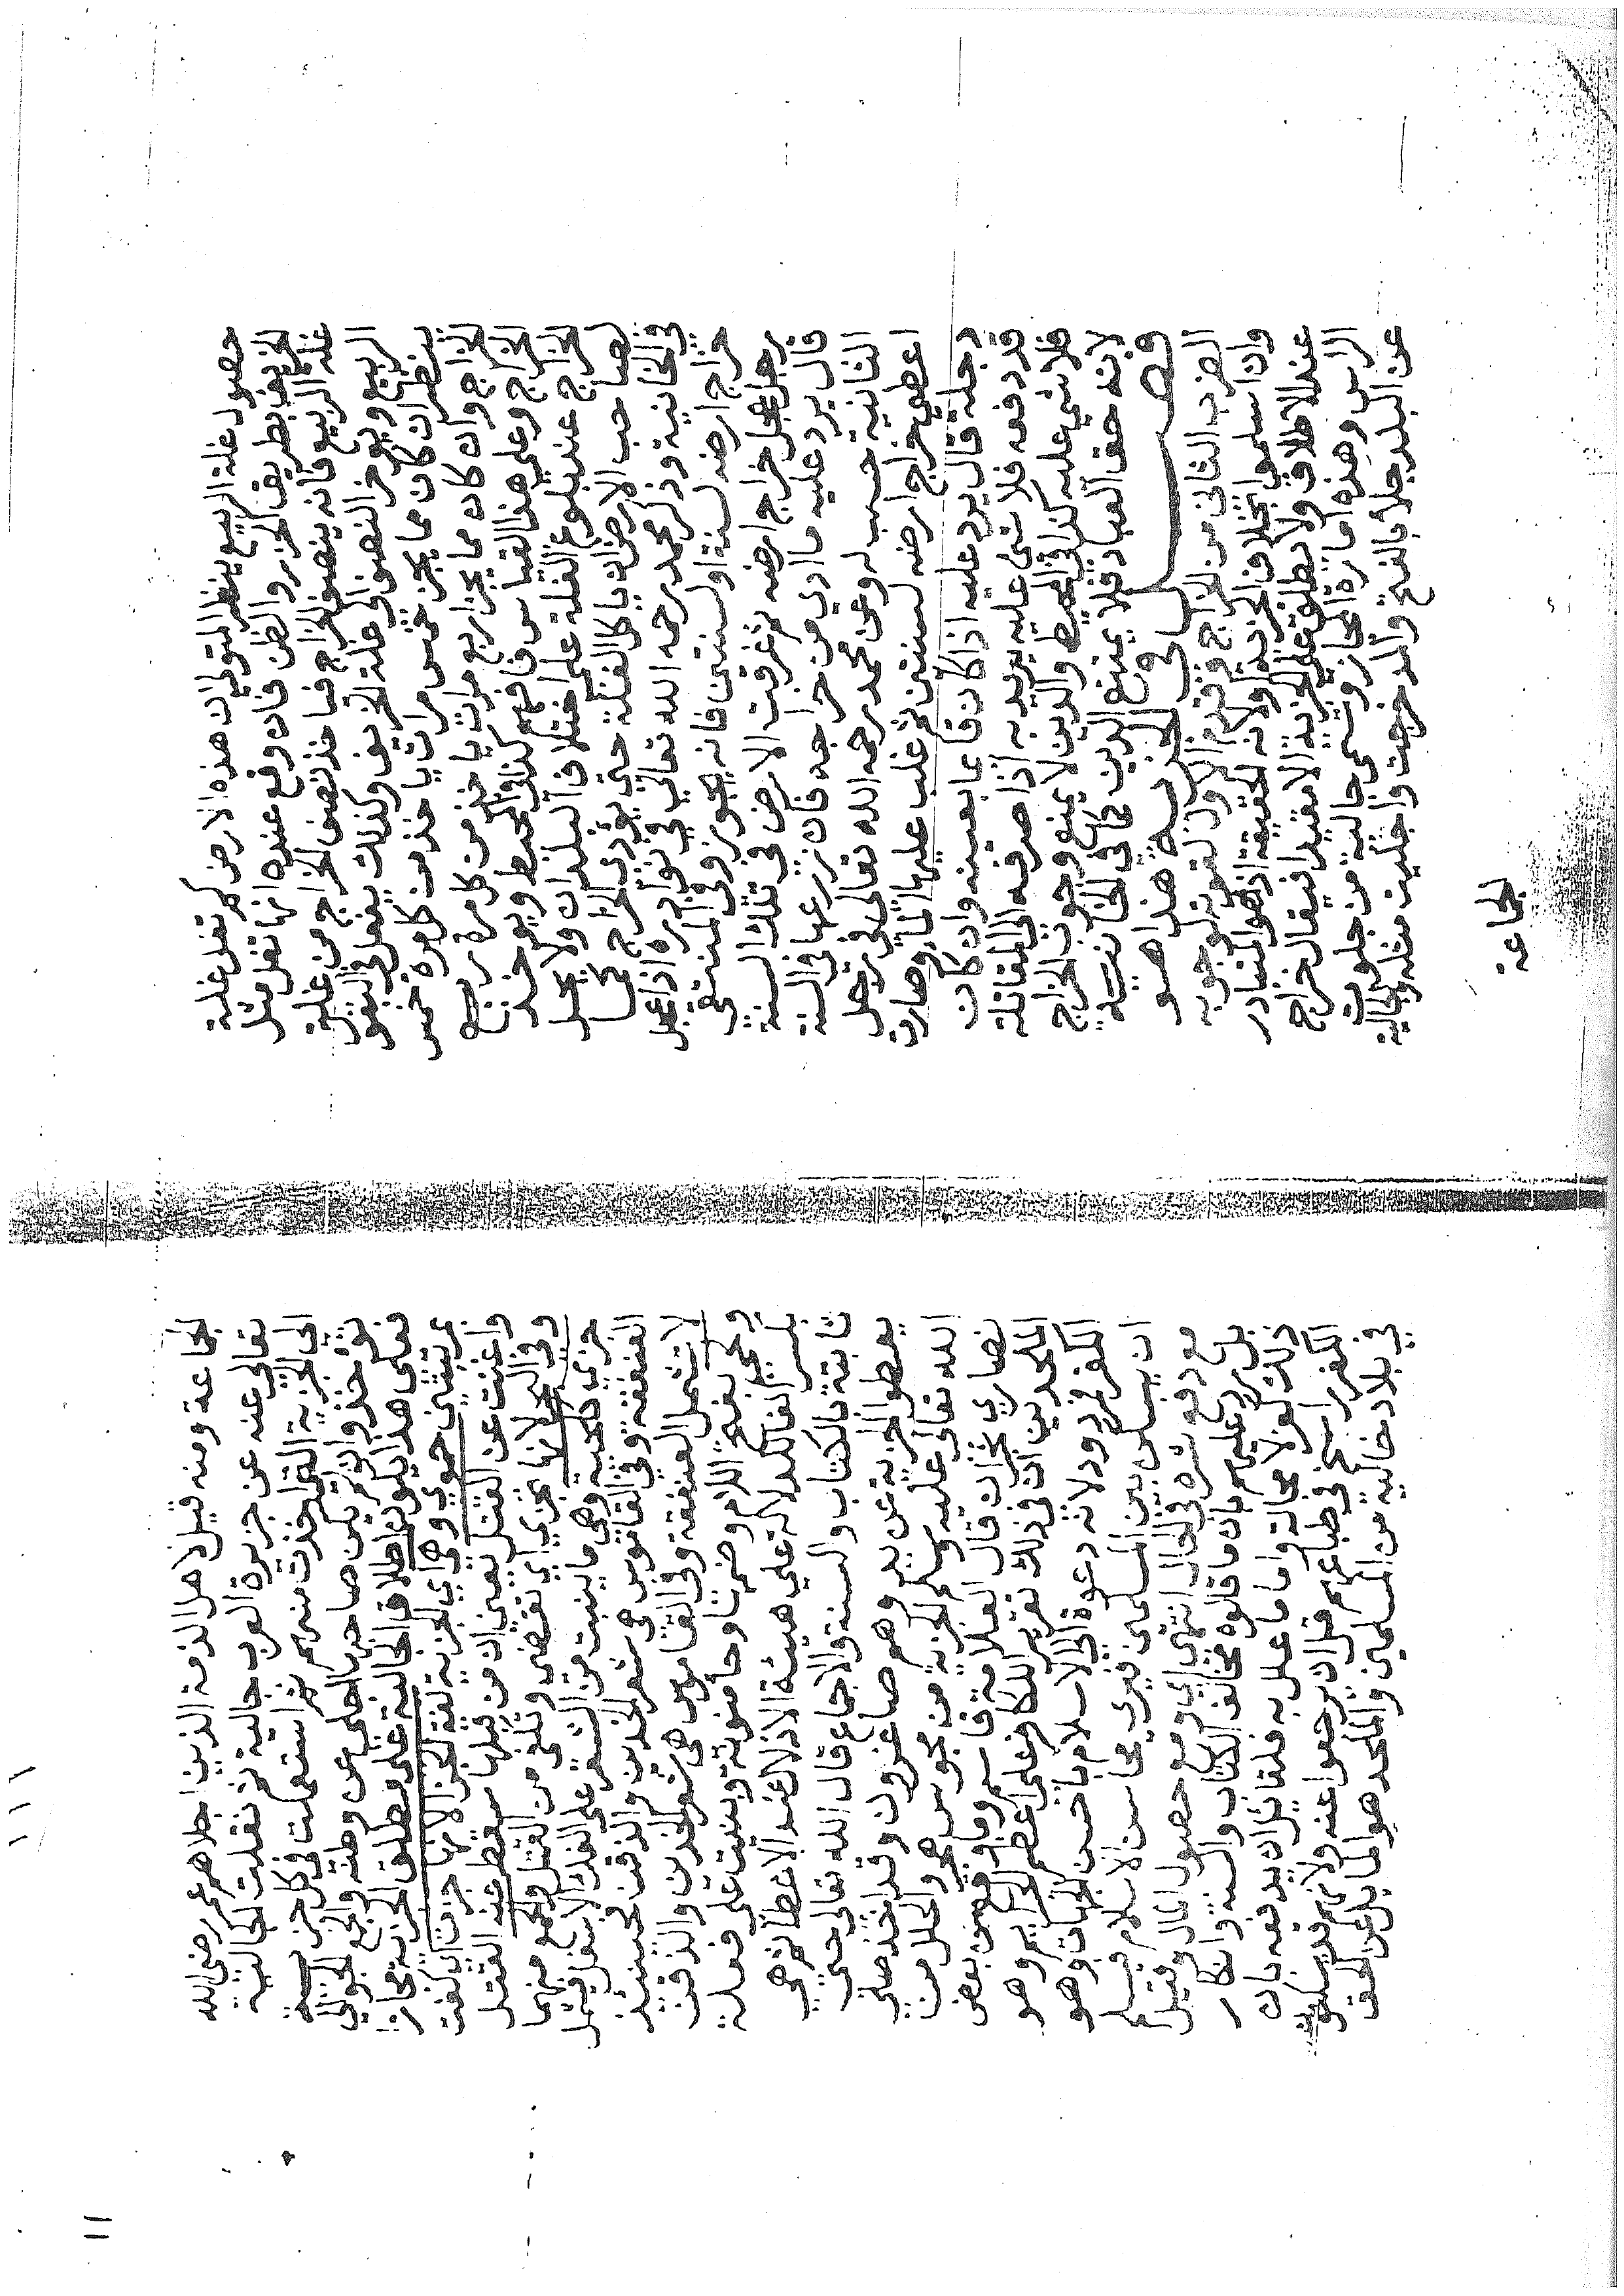 حصول غلة الربيع ينظر المتولي ان هذه الارض كم تغل غلة
الخريف بطريق الحزر والظن فان وقع عنده انها تغل مثل
غلة الربيع فانه ينصف الخراج فياخذ نصف الخراج من غلة
الربيع ويؤخر النصف الى غلة الخريف وكذلك يفعل في البقول
ينظر ان كان مما يجز خمس مرات ياخذ من كل مرة خمس
الخراج وان كان مما يجز اربع مرات ياخذ من كل مرة ربع
الخراج وعلى هذا القياس فافهم كذا في المحيط ويؤخذ
الخراج عند بلوغ الغلة على اختلاف البلدان ولا يحل
لصاحب الارض ان ياكل الغلة حتى يؤدي الخراج كما
في الخانية وذكر محمد رحمه الله تعالى في نوادره اذا عجل
خراج ارضه لسنة او لسنتين فانه يجوز وفي المنتقى
رجل عجل خراج ارضه ثم غرقت الارض في تلك السنة
قال يرد عليه ما ادى من خراجه فان زرعها في السنة
الثانية حسب له وعن محمد رحمه الله تعالى في رجل
اعطى خراج ارضه لسنتين ثم غلب عليها الماء وصارت
دجلة قال يرد عليه اذا كان قائما بعينه وان كان
قد دفعه فلا شئ عليه يريد به اذا صرفه الى المقاتلة
فلا شئ عليه كذا في المحيط والدين لا يمنع وجوب الخراج
لانه حق العباد فلا يمنع الدين كما في الخانية
فصل في الجزية هذا هو
الضرب الثاني من الخراج وقدم الاول لقوته لوجوبه
وان اسلموا بخلاف الجزية ولانه الحقيقة اذ هو المتبادر
عند الاطلاق ولا يطلق على الجزية الا مقيدا فيقال خراج
الراس وهذه امارة المجاز وتسمى جالية من جلوت
عن البلد جلاء بالفتح والمد خرجت واجليت مثله والجالية
الجماعة
الجماعة ومنه قيل لاهل الذمة الذين اجلاهم عمر رضى الله
تعالى عنه عن جزيرة العرب جالية ثم نقلت الجالية
الى الجزية التي اخذت منهم ثم استعملت في كل جزية
تؤخذ وان لم يكن صاحبها اجلي عن وطنه والجمع الجوالي
فعلى هذا يكون اطلاق الجالية على مطلق الجزية مجاز
بمرتبتين حموي وهي اي الجزية لغة الجزاء لانها جزت اي كفت
واغنت عن القتل يعني ان من قبلها سقط عنه القتل
وفي لانها تجزي اي تقضي وتكفي من القتل والجمع منهما
جزي كلحية وهي ما ينبت من الشعر على الفك الاسفل فيه
العنفقة وفي القاموس هي شعر الخدين والذقن فحينئذ
لا تشمل العنفقة وفي القاموس هي شعر الخدين والذقن
ولحى بفتح اللام وضمها وبنيت على فعلة
بكسر الفاء للدلالة على هيئة الاذلال عند الاعطاء ثم هي
ثابتة بالكتاب والسنة والاجماع قال الله تعالى حتى
يعطوا الجزية عن يد وهم صاغرون وقد اخذ صلى
الله تعالى عليه وسلم الجزية من مجوس هجر والحلل من
نصارى نجران قال العلامة قاسم وما وقع من بعض
الملحدين ان في ذلك تقرير الكافر على اعظم الجرائم وهو
الكفر مردود لانه دعوة الى الاسلام باحسن الجهات وهو
ان يسكن بين المسلمين فيرى محاسن الاسلام فيسلم
مع دفع شره في الحال انتهى اي ومع حصول المال وقيل
بل رد عليهم بان ما قالوه مخالف الكتاب والسنة وانكار
ذلك كفر لا محالة واما ما علل به فلقائل ان يدفعه بان
الكفر راسخ في طباعهم قل ان يرجعوا عنه ولانهم قد يسكنون
في بلاد خالية من المسلمين والملحد هو المائل عن الحق